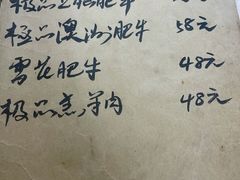 极品澳洲肥牛 58元
雪花肥牛 48元
极品羔羊肉 48元